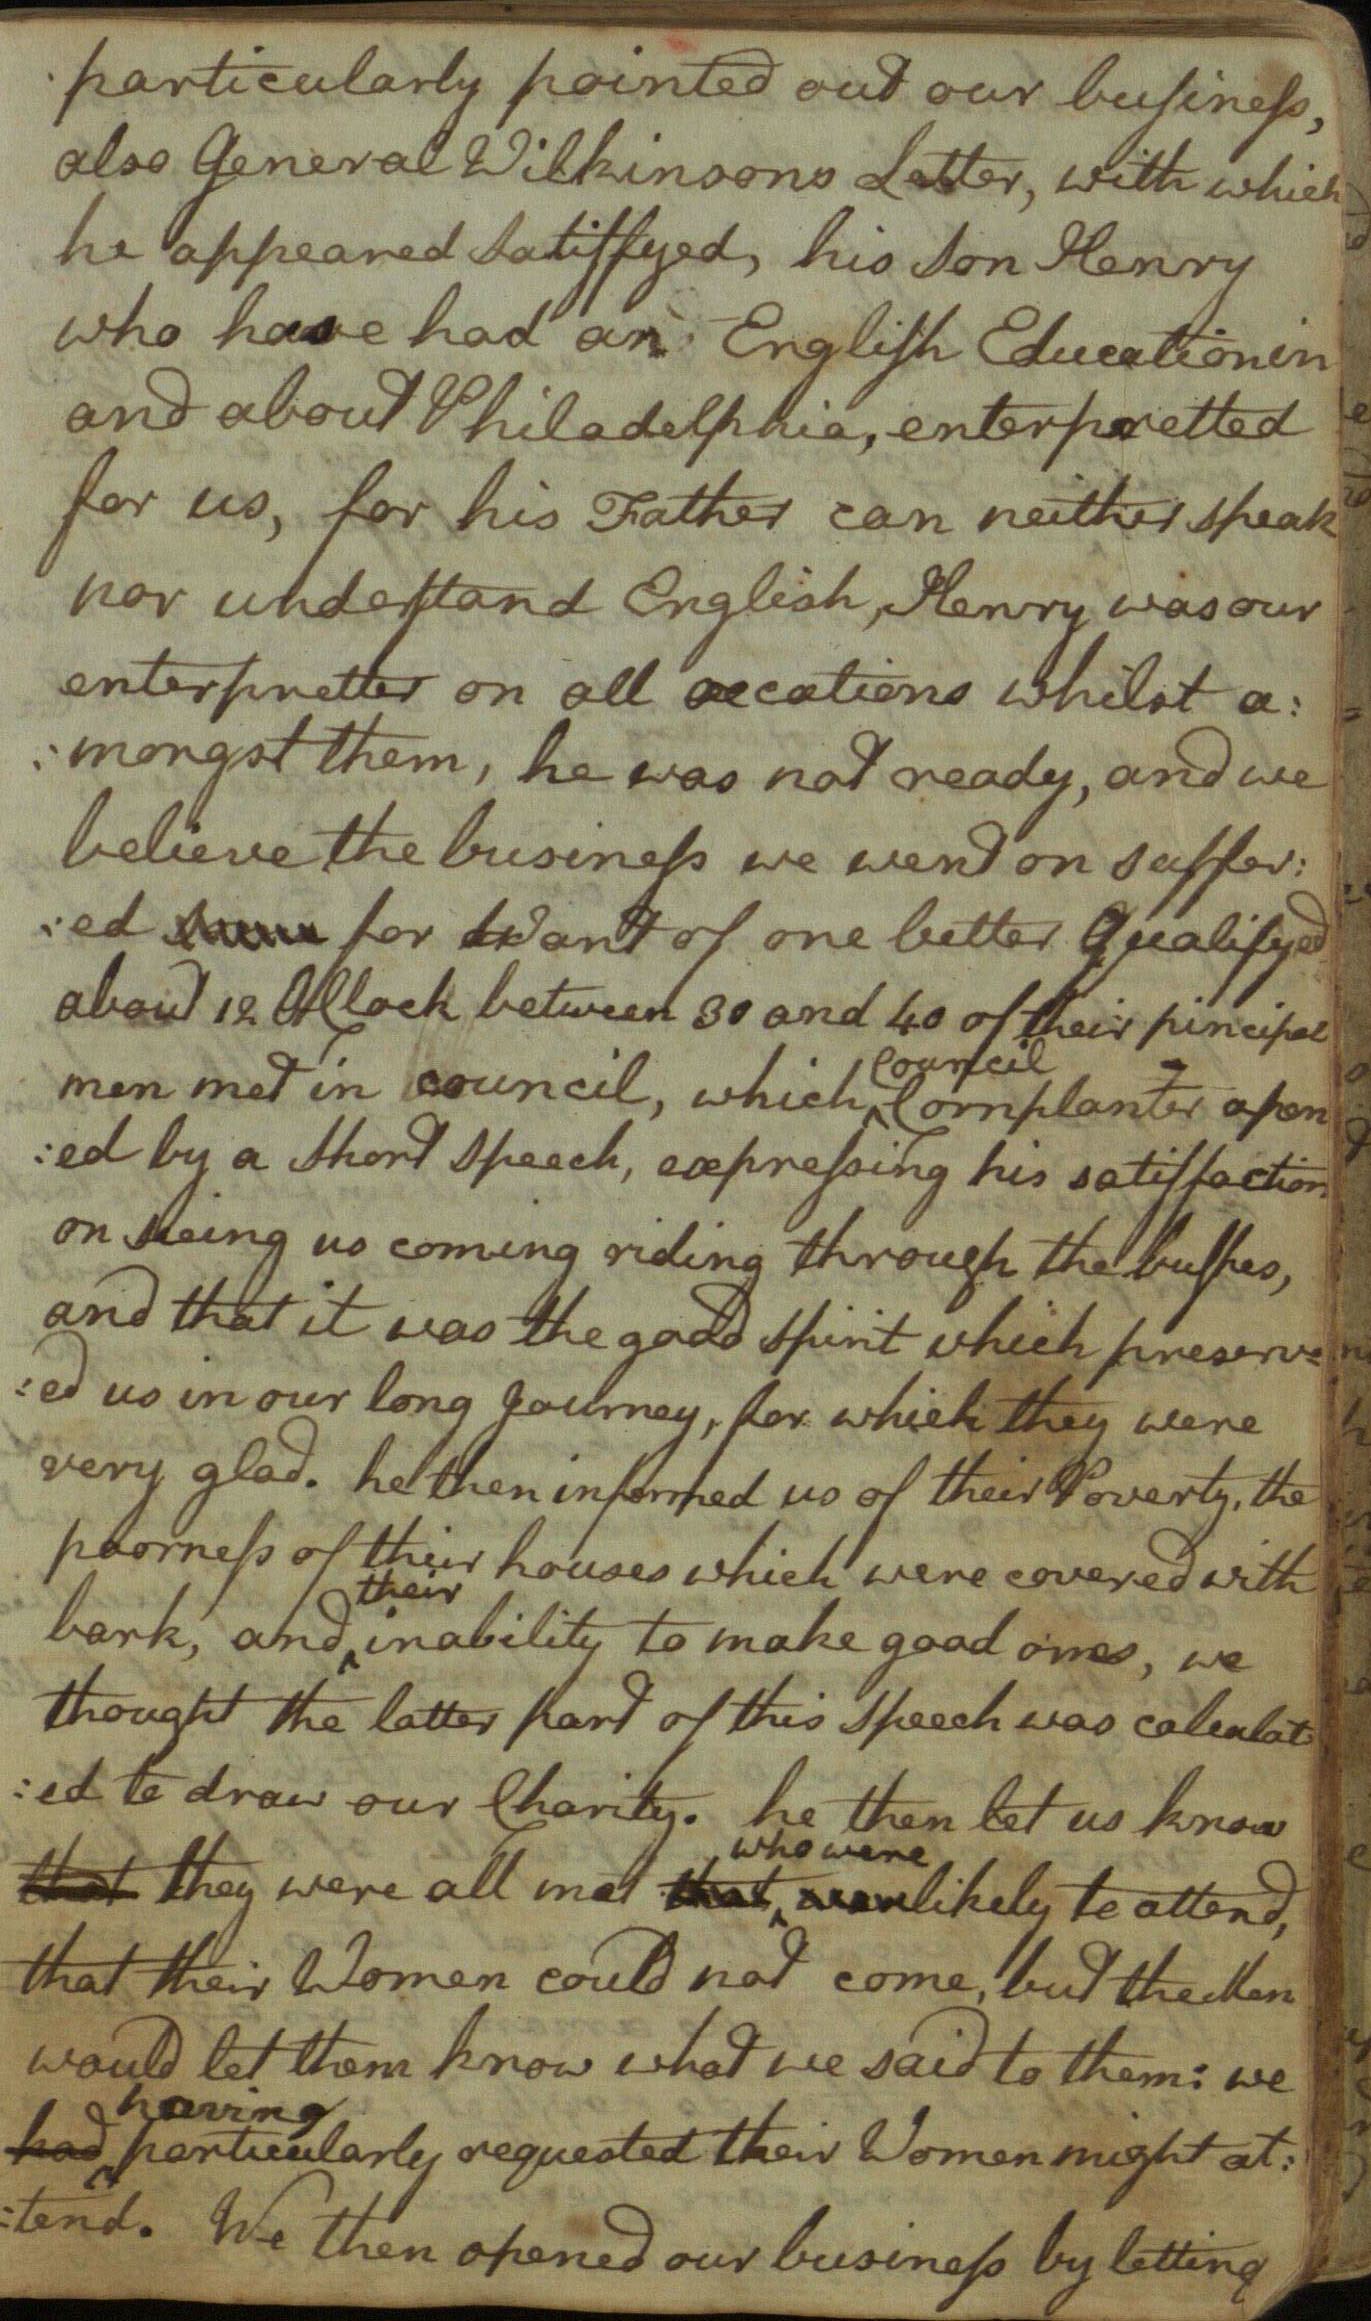 particularly pointed out our business,
also General Wilkinsons Letter, with which
he appeared satissfyed, his son Henry
who have had an English Education in
and about Philadelphia, enterpretted
for us, for his Father can neither speak
nor understand English, Henry was our
enterpretter on all occations whilst a:
:mongst them, he was not ready, and we
believe the business we went on suffer:
:ed for Want of one better Qualifyed
about 12 OClock between 30 and 40 of their pincipal
men met in council, which Council Cornplanter open
:ed by a short speech, expressing his satisfaction
on seeing us coming riding through the bushes,
and that it was the good spirit which preserv=
:ed us in our long Journey, for which they were
very glad. he then informed us of their Poverty, the
poorness of their houses which were covered with
bark, and their inability to make good ones, we
thought the latter part of this speech was calculat:
:ed to draw our Charity. he then let us know
that they were all met that who were likely to attend,
that their Women could not come, but the Men
would let them know what we said to them: we
had having particularly requested their Women might at:
:tend. We then opened our business by letting